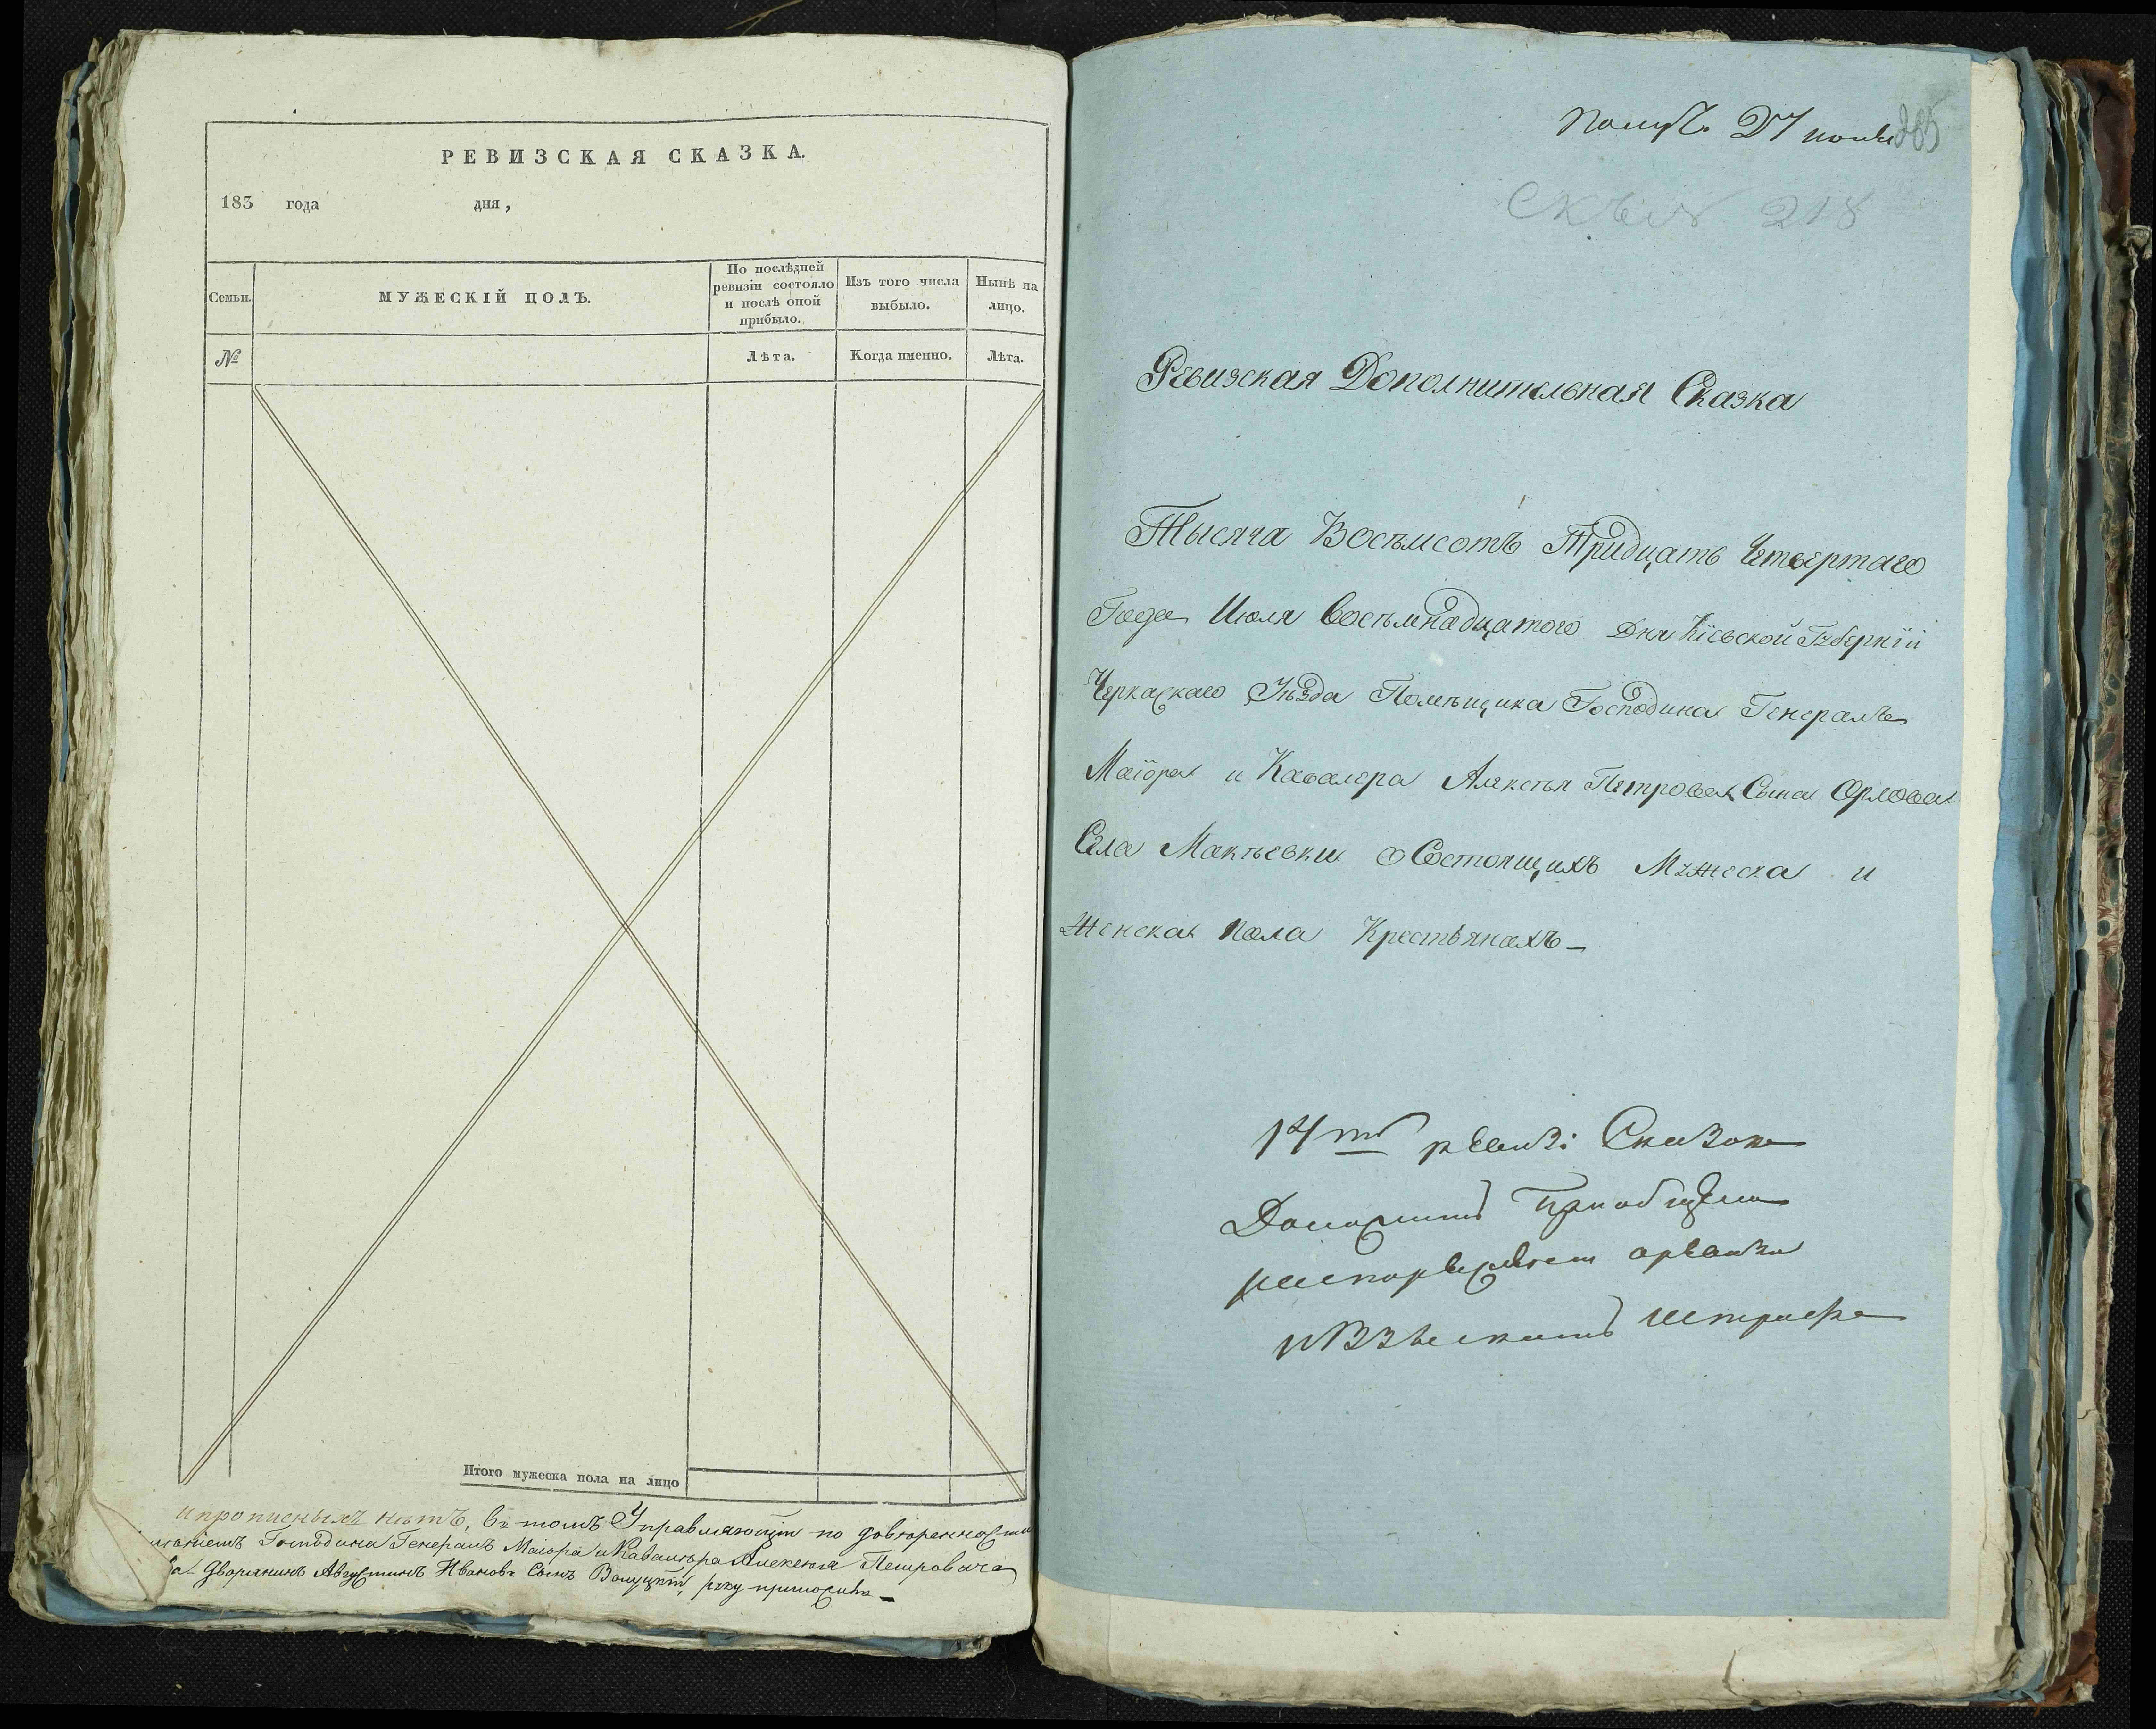 РЕВИЗСКАЯ СКАЗКА.
183 года дня,
Семьи.
МУЖЕСКІЙ ПОЛЪ.
По послѣдней ревизіи состояло и послѣ оной прибыло.
Изъ того числа выбыло.
Нынѣ на лицо.
№
Лѣта.
Когда именно.
Лѣта.
Итого мужеска пола на лицо
и прописныхъ нѣтъ, въ томъ Управляющій по довѣренности
имѣніемъ Господина Генералъ Маіора и Кавалера Алексѣя Петровича
Дворянинъ Августинъ Ивановъ Сынъ руку приложилъ
Получ. 27 285
218
Ревизская Дополнительная Сказка
Тысяча Восѣмсотъ Тридцать Четвертаго
Года Июля Восѣмнадцатого Дня Кіевской Губерніи
Черкаскаго Уѣзда Помѣщика Господина Генералъ
Маіора и Кавалера Алексѣя Петрова Сына Орлова
Села Макѣевки о Состоящихъ Мужеска и
Женска пола Крестьянахъ
ревиз: Сказок
и Взыскать штрафа